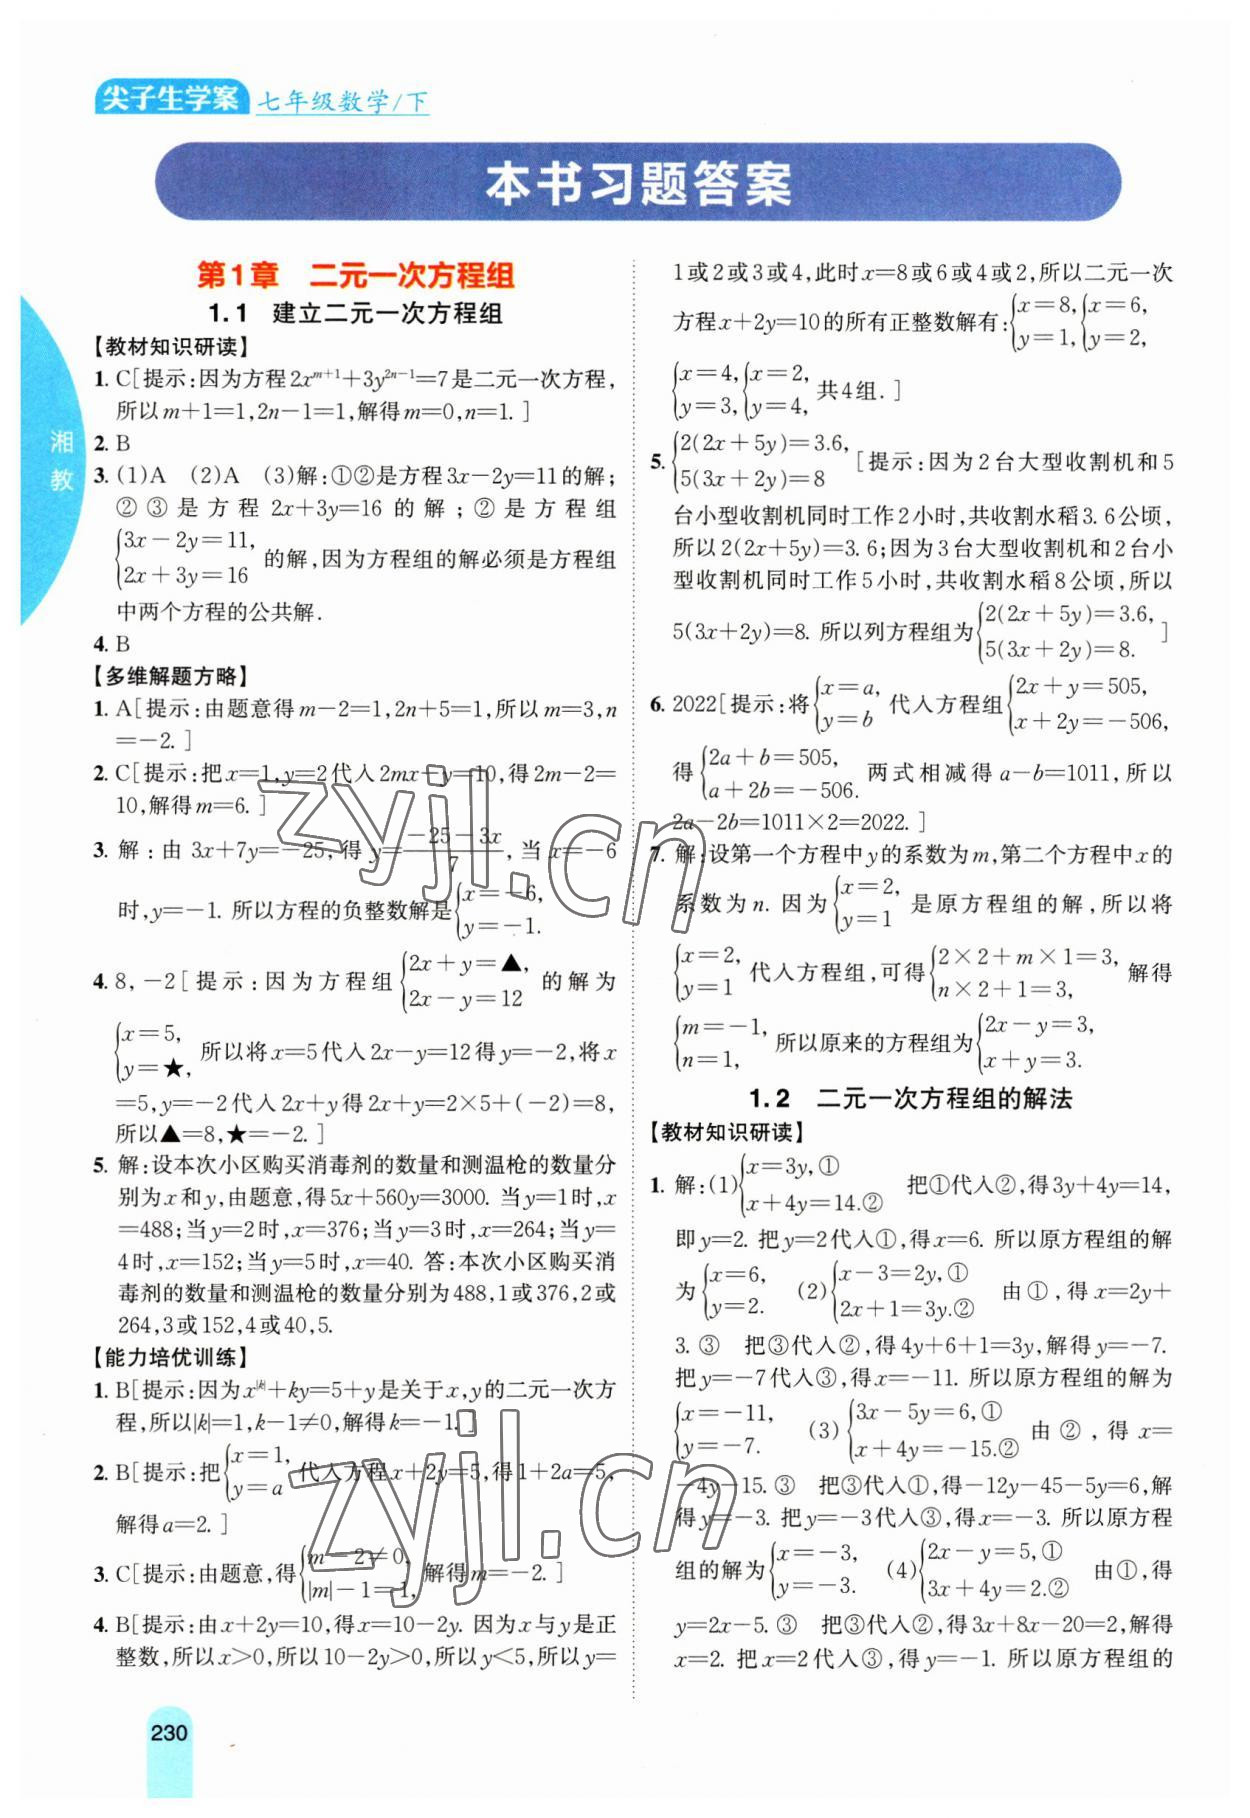 尖子生学案 七年级数学/下
本书习题答案
湘教
第1章 二元一次方程组
1.1 建立二元一次方程组
【教材知识研读】
1. C[提示:因为方程2x^{m+1}+3y^{2n-1}=7是二元一次方程,
所以m+1=1,2n-1=1,解得m=0,n=1.]
2. B
3. (1)A (2)A (3)解:①②是方程3x-2y=11的解;
②③是方程2x+3y=16的解;②是方程组
{3x-2y=11, 2x+3y=16 的解,因为方程组的解必须是方程组
中两个方程的公共解.
4. B
【多维解题方略】
1. A[提示:由题意得m-2=1,2n+5=1,所以m=3,n
=-2.]
2. C[提示:把x=1,y=2代入2mx-y=10,得2m-2=
10,解得m=6.]
3. 解:由3x+7y=-25,得y=(-25-3x)/7,当x=-6
时,y=-1. 所以方程的负整数解是{x=-6, y=-1.
4. 8,-2[提示:因为方程组{2x+y=▲, 2x-y=12 的解为
{x=5, y=★, 所以将x=5代入2x-y=12得y=-2,将x
=5,y=-2代入2x+y得2x+y=2×5+(-2)=8,
所以▲=8,★=-2.]
5. 解:设本次小区购买消毒剂的数量和测温枪的数量分
别为x和y,由题意,得5x+560y=3000. 当y=1时,x
=488;当y=2时,x=376;当y=3时,x=264;当y=
4时,x=152;当y=5时,x=40. 答:本次小区购买消
毒剂的数量和测温枪的数量分别为488,1或376,2或
264,3或152,4或40,5.
【能力培优训练】
1. B[提示:因为x^{|k|}+ky=5+y是关于x,y的二元一次方
程,所以|k|=1,k-1≠0,解得k=-1.]
2. B[提示:把{x=1, y=a 代入方程x+2y=5,得1+2a=5,
解得a=2.]
3. C[提示:由题意,得{m-2≠0, |m|-1=1, 解得m=-2.]
4. B[提示:由x+2y=10,得x=10-2y. 因为x与y是正
整数,所以x>0,所以10-2y>0,所以y<5,所以y=
1或2或3或4,此时x=8或6或4或2,所以二元一次
方程x+2y=10的所有正整数解有:{x=8, y=1, {x=6, y=2,
{x=4, y=3, {x=2, y=4, 共4组.]
5. {2(2x+5y)=3.6, 5(3x+2y)=8 [提示:因为2台大型收割机和5
台小型收割机同时工作2小时,共收割水稻3.6公顷,
所以2(2x+5y)=3.6;因为3台大型收割机和2台小
型收割机同时工作5小时,共收割水稻8公顷,所以
5(3x+2y)=8. 所以列方程组为{2(2x+5y)=3.6, 5(3x+2y)=8.]
6. 2022[提示:将{x=a, y=b 代入方程组{2x+y=505, x+2y=-506,
得{2a+b=505, a+2b=-506. 两式相减得a-b=1011,所以
2a-2b=1011×2=2022.]
7. 解:设第一个方程中y的系数为m,第二个方程中x的
系数为n. 因为{x=2, y=1 是原方程组的解,所以将
{x=2, y=1 代入方程组,可得{2×2+m×1=3, n×2+1=3, 解得
{m=-1, n=1, 所以原来的方程组为{2x-y=3, x+y=3.
1.2 二元一次方程组的解法
【教材知识研读】
1. 解:(1){x=3y,① x+4y=14.② 把①代入②,得3y+4y=14,
即y=2. 把y=2代入①,得x=6. 所以原方程组的解
为{x=6, y=2. (2){x-3=2y,① 2x+1=3y.② 由①,得x=2y+
3.③ 把③代入②,得4y+6+1=3y,解得y=-7.
把y=-7代入③,得x=-11. 所以原方程组的解为
{x=-11, y=-7. (3){3x-5y=6,① x+4y=-15.② 由②,得x=
-4y-15.③ 把③代入①,得-12y-45-5y=6,解
得y=-3. 把y=-3代入③,得x=-3. 所以原方程
组的解为{x=-3, y=-3. (4){2x-y=5,① 3x+4y=2.② 由①,得
y=2x-5.③ 把③代入②,得3x+8x-20=2,解得
x=2. 把x=2代入③,得y=-1. 所以原方程组的
230
zyjl.cn
zyjl.cn